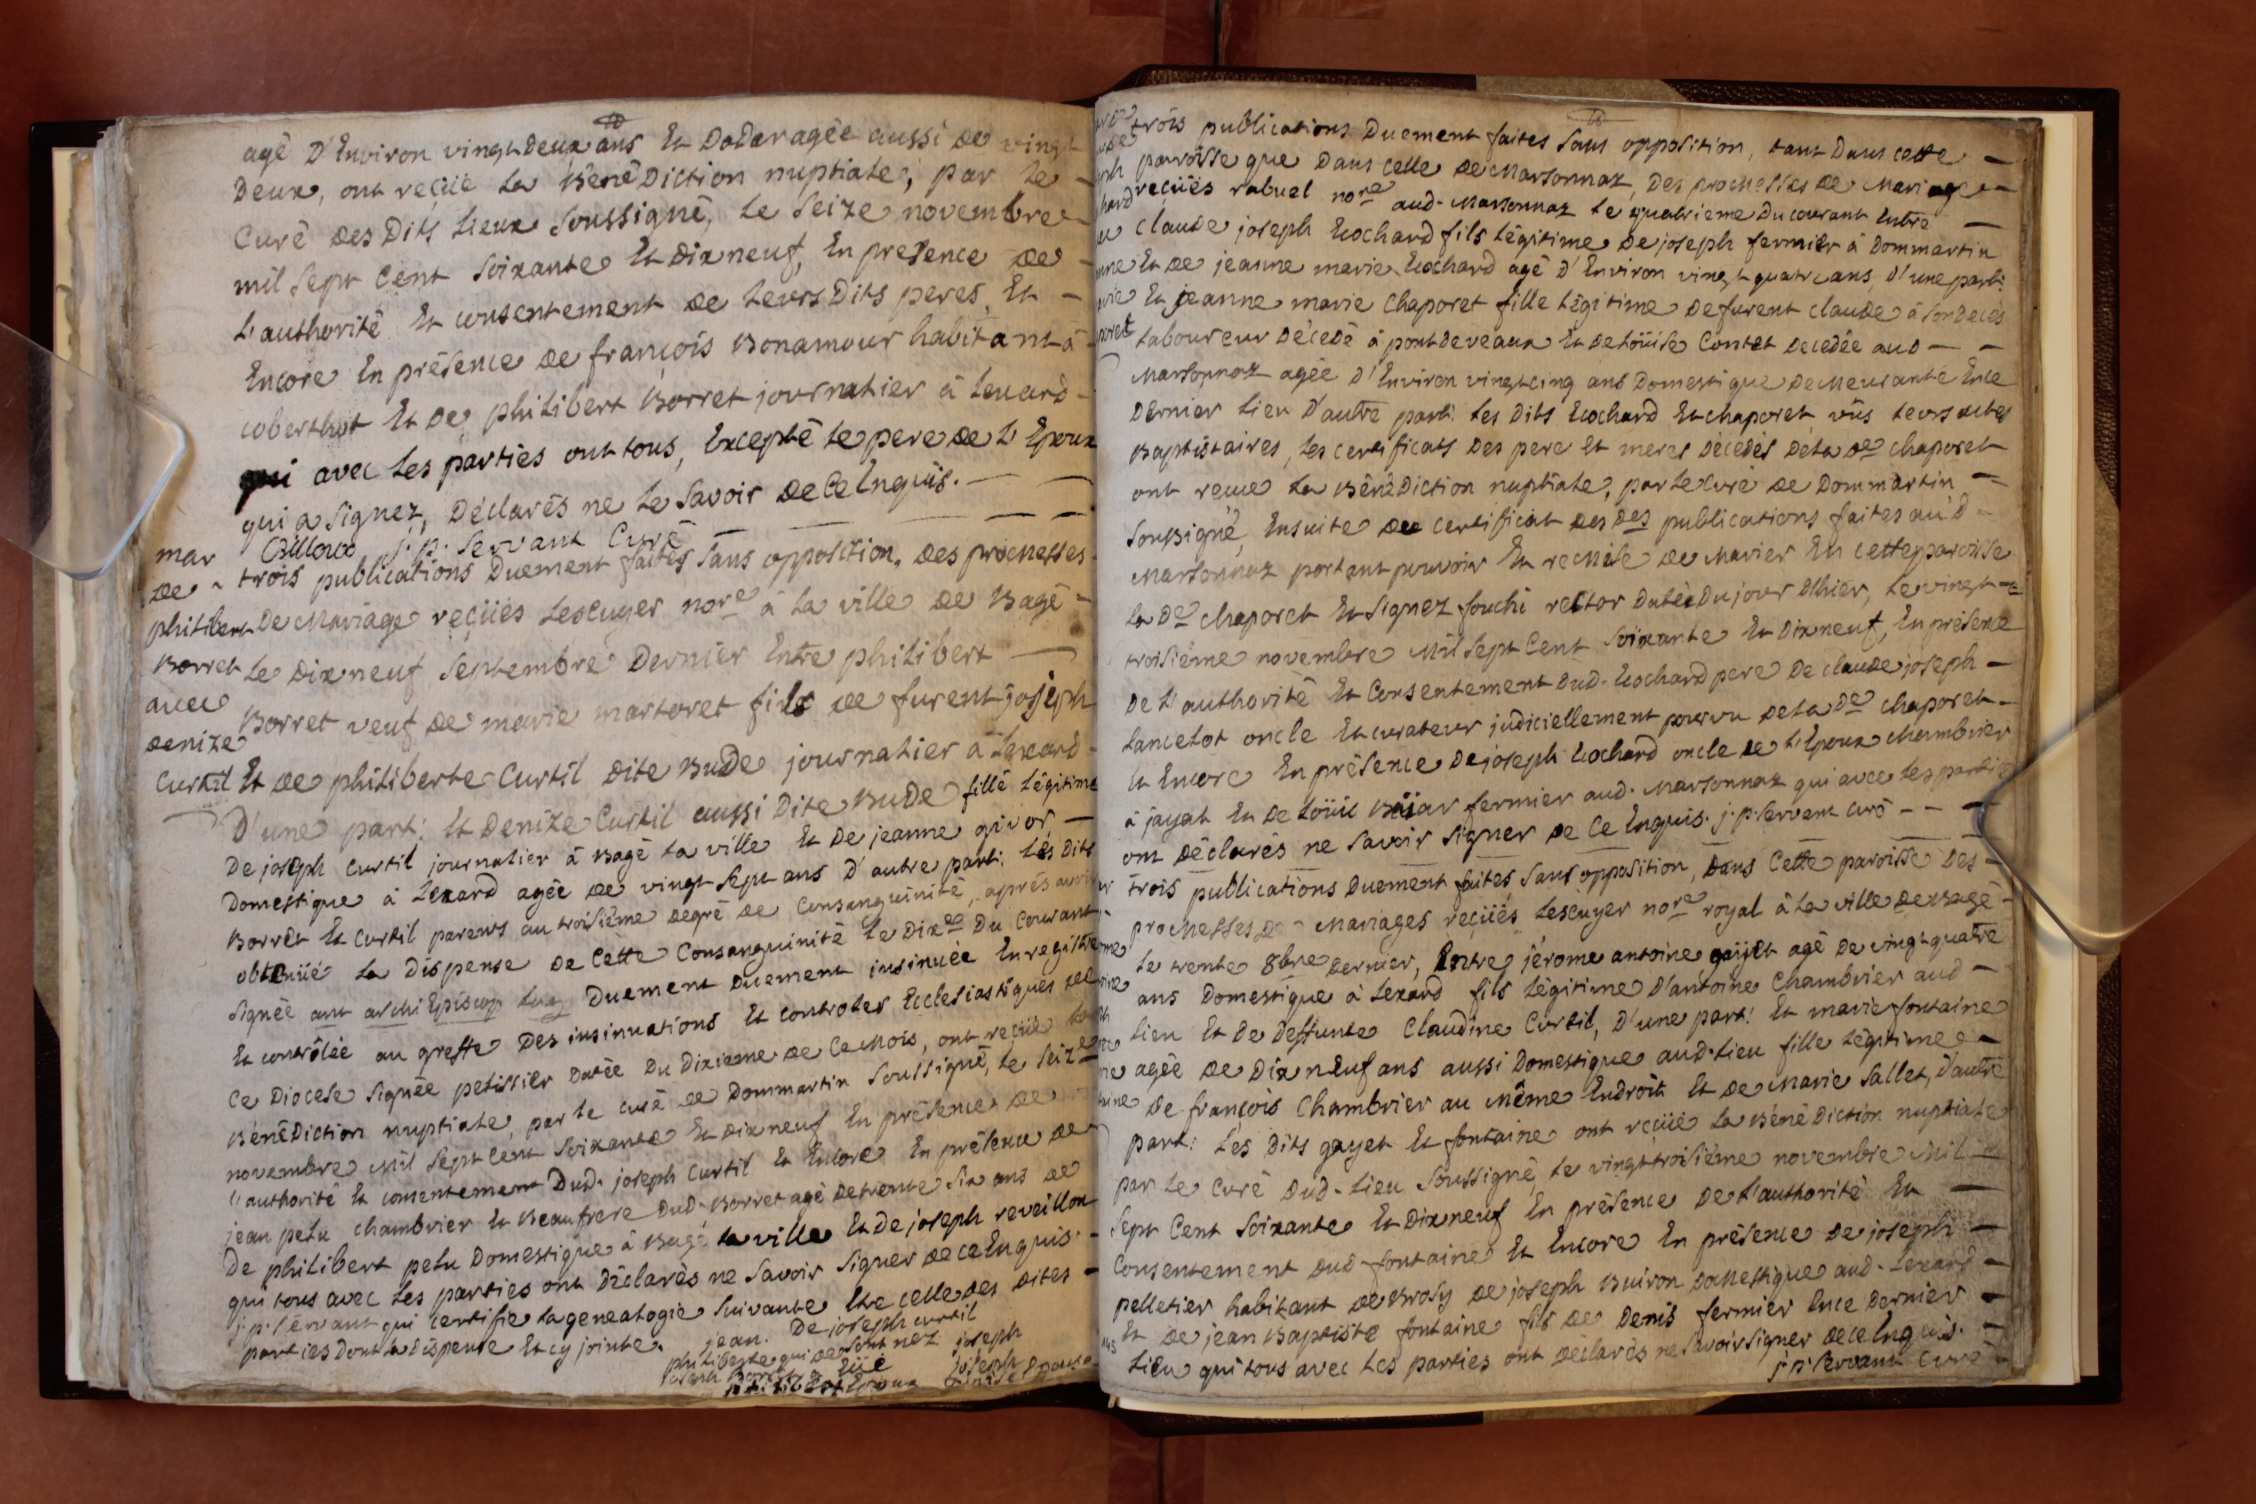 agé D'Environ vingt Deux ans Et Doder agée aussi de vingt
Deux, ont reçüe La Bénédiction nuptiale, par le
Curé des Dits Lieux soussigné, Le Seize novembre
mil sept Cent soixante Et dix neuf, En presence de
L'authorité Et consentement de Leurs Dits peres, Et
Encore En présence de françois Bonamour habitant à
coberthot Et de philibert Borret journalier à Lexard
qui avec Les parties ont tous, Excepté Le pere de L'Epoux
qui a signez, Déclarés ne Le Savoir de Ce Enquis.
Billoux j. p. Servant Curé
mar
de
philibert
Borret
avec
denize
Curtil
trois publications Duement faites Sans opposition, des promesses
De Mariage reçües Lescuyer nore à La ville de Bagé
Le Dix neuf Septembre Dernier Entre philibert
Borret veuf de marie martoret fils de furent joseph
Et de philiberte Curtil dite Bude journalier à Lexard
D'une part: Et Denize Curtil aussi Dite Bude fille Légitime
De joseph Curtil journalier à Bagé La ville Et De jeanne givor
Domestique à Lexard agée de vingt Sept ans D'autre part: Les Dits
Borret Et Curtil parents au troisiéme degré de Consanguinité, aprés avoir
obtenüe La Dispense de Cette Consanguinité Le Dixe Du Courant
Signée ant archi Episcop Lug Duement Duement insinuée Enregistrée
Et contrôlée au greffe Des insinuations Et controles Ecclesiastiques de
Ce Diocese Signée petissier Datée Du Dixieme de Ce Mois, ont reçüe La
Bénédiction nuptiale, par le curé de Dommartin Soussigné, Le Seize
novembre Mil Sept Cent Soixante Et dix neuf En présence de
L'authorité Et consentement Dud. joseph Curtil Et Encore En présence de
jean petu chambrier Et Beaufrere Dud. Borret agé de trente Six ans de
De philibert petu Domestique à Bagé La ville Et de joseph reveillon
qui tous avec Les parties ont Déclarés ne Savoir Signer de Ce Enquis.
j. p. Servant qui certifie La genealogie Suivante Etre celle des dites
parties Dont La dispense Et cy jointe.
jean. De joseph curtil
philiberte qui de sont nez joseph
joseph
trois publications Duement faites Sans opposition, tant Dans cette
paroisse que Dans Celle de Marsonnaz, Des promesses de Mariage
reçües rabuel nore aud. Marsonnaz Le quatrieme Du courant Entre
Claude joseph Cochard fils Légitime De joseph fermier à Dommartin
Et de jeanne marie Cochard agé D'Environ vingt quatre ans, D'une part:
Et jeanne marie Chaporet fille Légitime De furent claude à Son Deces
Laboureur Décedé à pontdeveaux Et De Loüise Contet Décedée aud
Marsonnaz agée D'Environ vingt cinq ans Domestique Demeurante En Ce
Dernier Lieu D'autre part. Les Dits Cochard Et chaporet vüs Leurs actes
Baptistaires, Les certificats Des pere Et meres Décedés De La De chaporet
ont reçue La Bénédiction nuptiale, par Le Curé de Dommartin
Soussigné, Ensuite de certificat des Des publications faites aud
Marsonnaz portant pouvoir Et remise de Marier En cette paroisse
La De chaporet Et Signez fouchi rector Datée Du jour D'hier, Le vingt
troisiéme novembre Mil Sept Cent Soixante Et Dix neuf, En présence
De L'authorité Et Consentement Dud. Cochard pere De claude joseph
Lancelot oncle Et curateur judiciellement pourvu De La De chaporet
Et Encore En présence De joseph Cochard oncle de L'Epoux chambrier
à jayat Et De Loüis Bajar fermier aud. Marsonnaz qui avec Les parties
ont Déclarés ne Savoir Signer de Ce Enquis. j. p. Servant Curé
trois publications Duement faites Sans opposition, Dans Cette paroisse Des
promesses de Mariages reçües Lescuyer nore royal à La ville de Bagé
Le trente 8bre Dernier, Entre jérome antoine gayet agé De vingt quatre
ans Domestique à Lexard fils Légitime D'antoine Chambrier aud
Lieu Et De Deffunte Claudine Curtil, D'une part: Et marie fontaine
agée de Dix neuf ans aussi Domestique aud. Lieu fille Légitime
De françois Chambrier au Même Endroit Et de Marie Sallet, d'autre
part: Les Dits gayet Et fontaine ont reçüe La Bénédiction nuptiale
par Le Curé Dud. Lieu Soussigné, Le vingt troisiéme novembre Mil
Sept Cent Soixante Et Dix neuf En présence De L'authorité Et
Consentement Dud. fontaine Et Encore En présence de joseph
pelletier habitant de Brosy de joseph Buiron Domestique aud. Lexard
Et de jean Baptiste fontaine fils de Denis fermier En Ce Dernier
Lieu qui tous avec Les parties ont Déclarés ne Savoir Signer de Ce Enquis.
j. p. Servant Curé